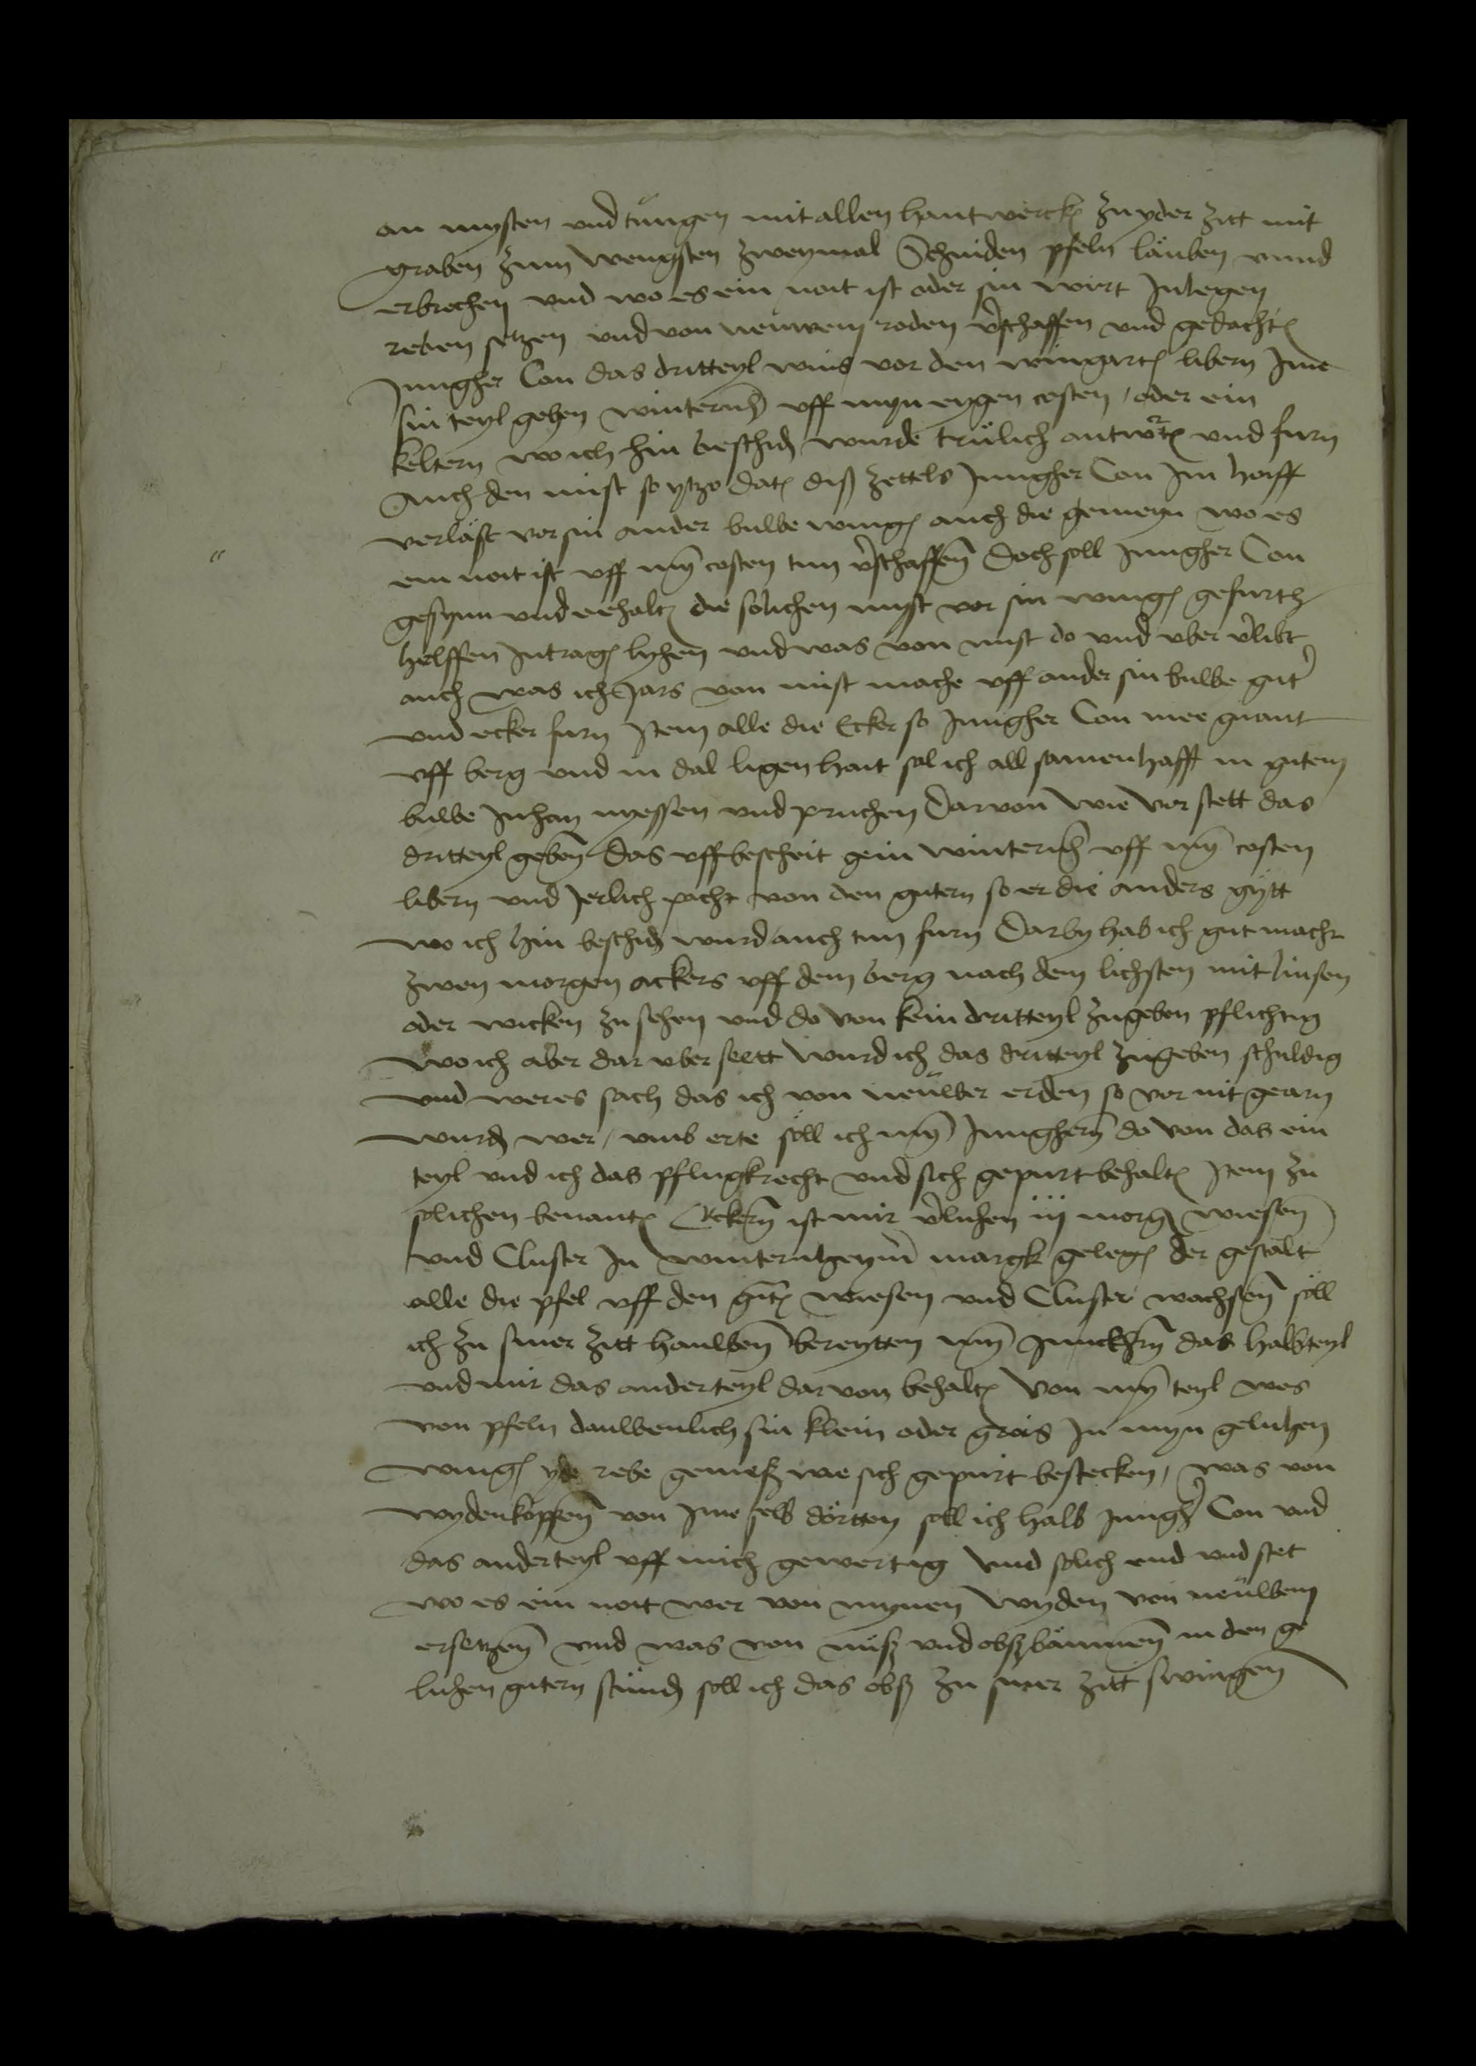 an mysten und tungen mit allen hantwerck zu yder zitt mit
graben zum wengsten zweymal Schniden pfeln läuben unnd
erbrechen und wo es ein noit ist oder sin wirt Inlegen
reben setzen und von neuwem roden v̓schaffen und gedacht
Jungher Con das dritteyl wins vor den wingart libern Ime
sin teyl gehen winternh uff myn eygen costen / oder ein
keltern wo ich hin beschid wurde trülich antwrt und furn
Auch den mist so ytzo dat diß zettels Jungher Con Im hoiff
verläst vor sin ander bulbe wing auch die gemeyn wo es
ein noit ist uff myn costen tun v̓schaffen Doch soll Jungher Con
gesynn und eehalt die solichen myst vor sin wing gefurth
helffen Intrag lyhen und was von mist do und uber v̓libt
auch was ich Jars von mist mache uff ander sin bulbe gut
und ecker furn Item alle die Ecker so Jungher Con mee gnant
uff berg und in dal ligen hait sol ich all samenhafft in gutem
bulbe Inhan nyessen und pruchen Darvon wie vor stett das
dritteyl geben Das uff bescheit gein winternh uff myn costen
libern und Jerlich pacht von den gutern so er die anders gytt
wo ich hin beschid wurd auch tun furn Darby hab ich gut macht
zwen morgen ackers uff dem berg nach dem lichsten mit linsen
oder wicken zu sehen und do von kein dritteyl zugeben pflichtig
wo ich aber dar uber seett wurd ich das dritteyl zugeben schuldig
und wer es sach das ich von neulber erden so vor nit gearn
wurd wer / umb erte soll ich myn Junghern do von das ein
teyl und ich das pflugkrecht und sich gepurt behalt Item zu
solichen benant Eckern ist mir v̓luhen iij morg wiesen
und Cluster In winternheym margk geleg der gestalt
alle die pfel uff den gnt wiesen und Cluster wachsen soll
ich zu siner zitt haulben bereytten myn Junckhrn das halbteyl
und mir das anderteyl dar von behalt Von myn teyl wes
von pfeln daulbenlich sin klein oder grois In myn geluhen
wing yde rebe gemeß wie sich gepurt bestecken / was von
wydenköpffen von Ime selb dörtten soll ich halb Jungh Con und
das anderteyl uff mich gewertig Und solich end und stet
wo es ein noit wer von mynen wyden von neulbem
ersetzen und was von nuß und obßbäumen in den ge
luhen gutern stund soll ich das obß zu siner zitt swingen